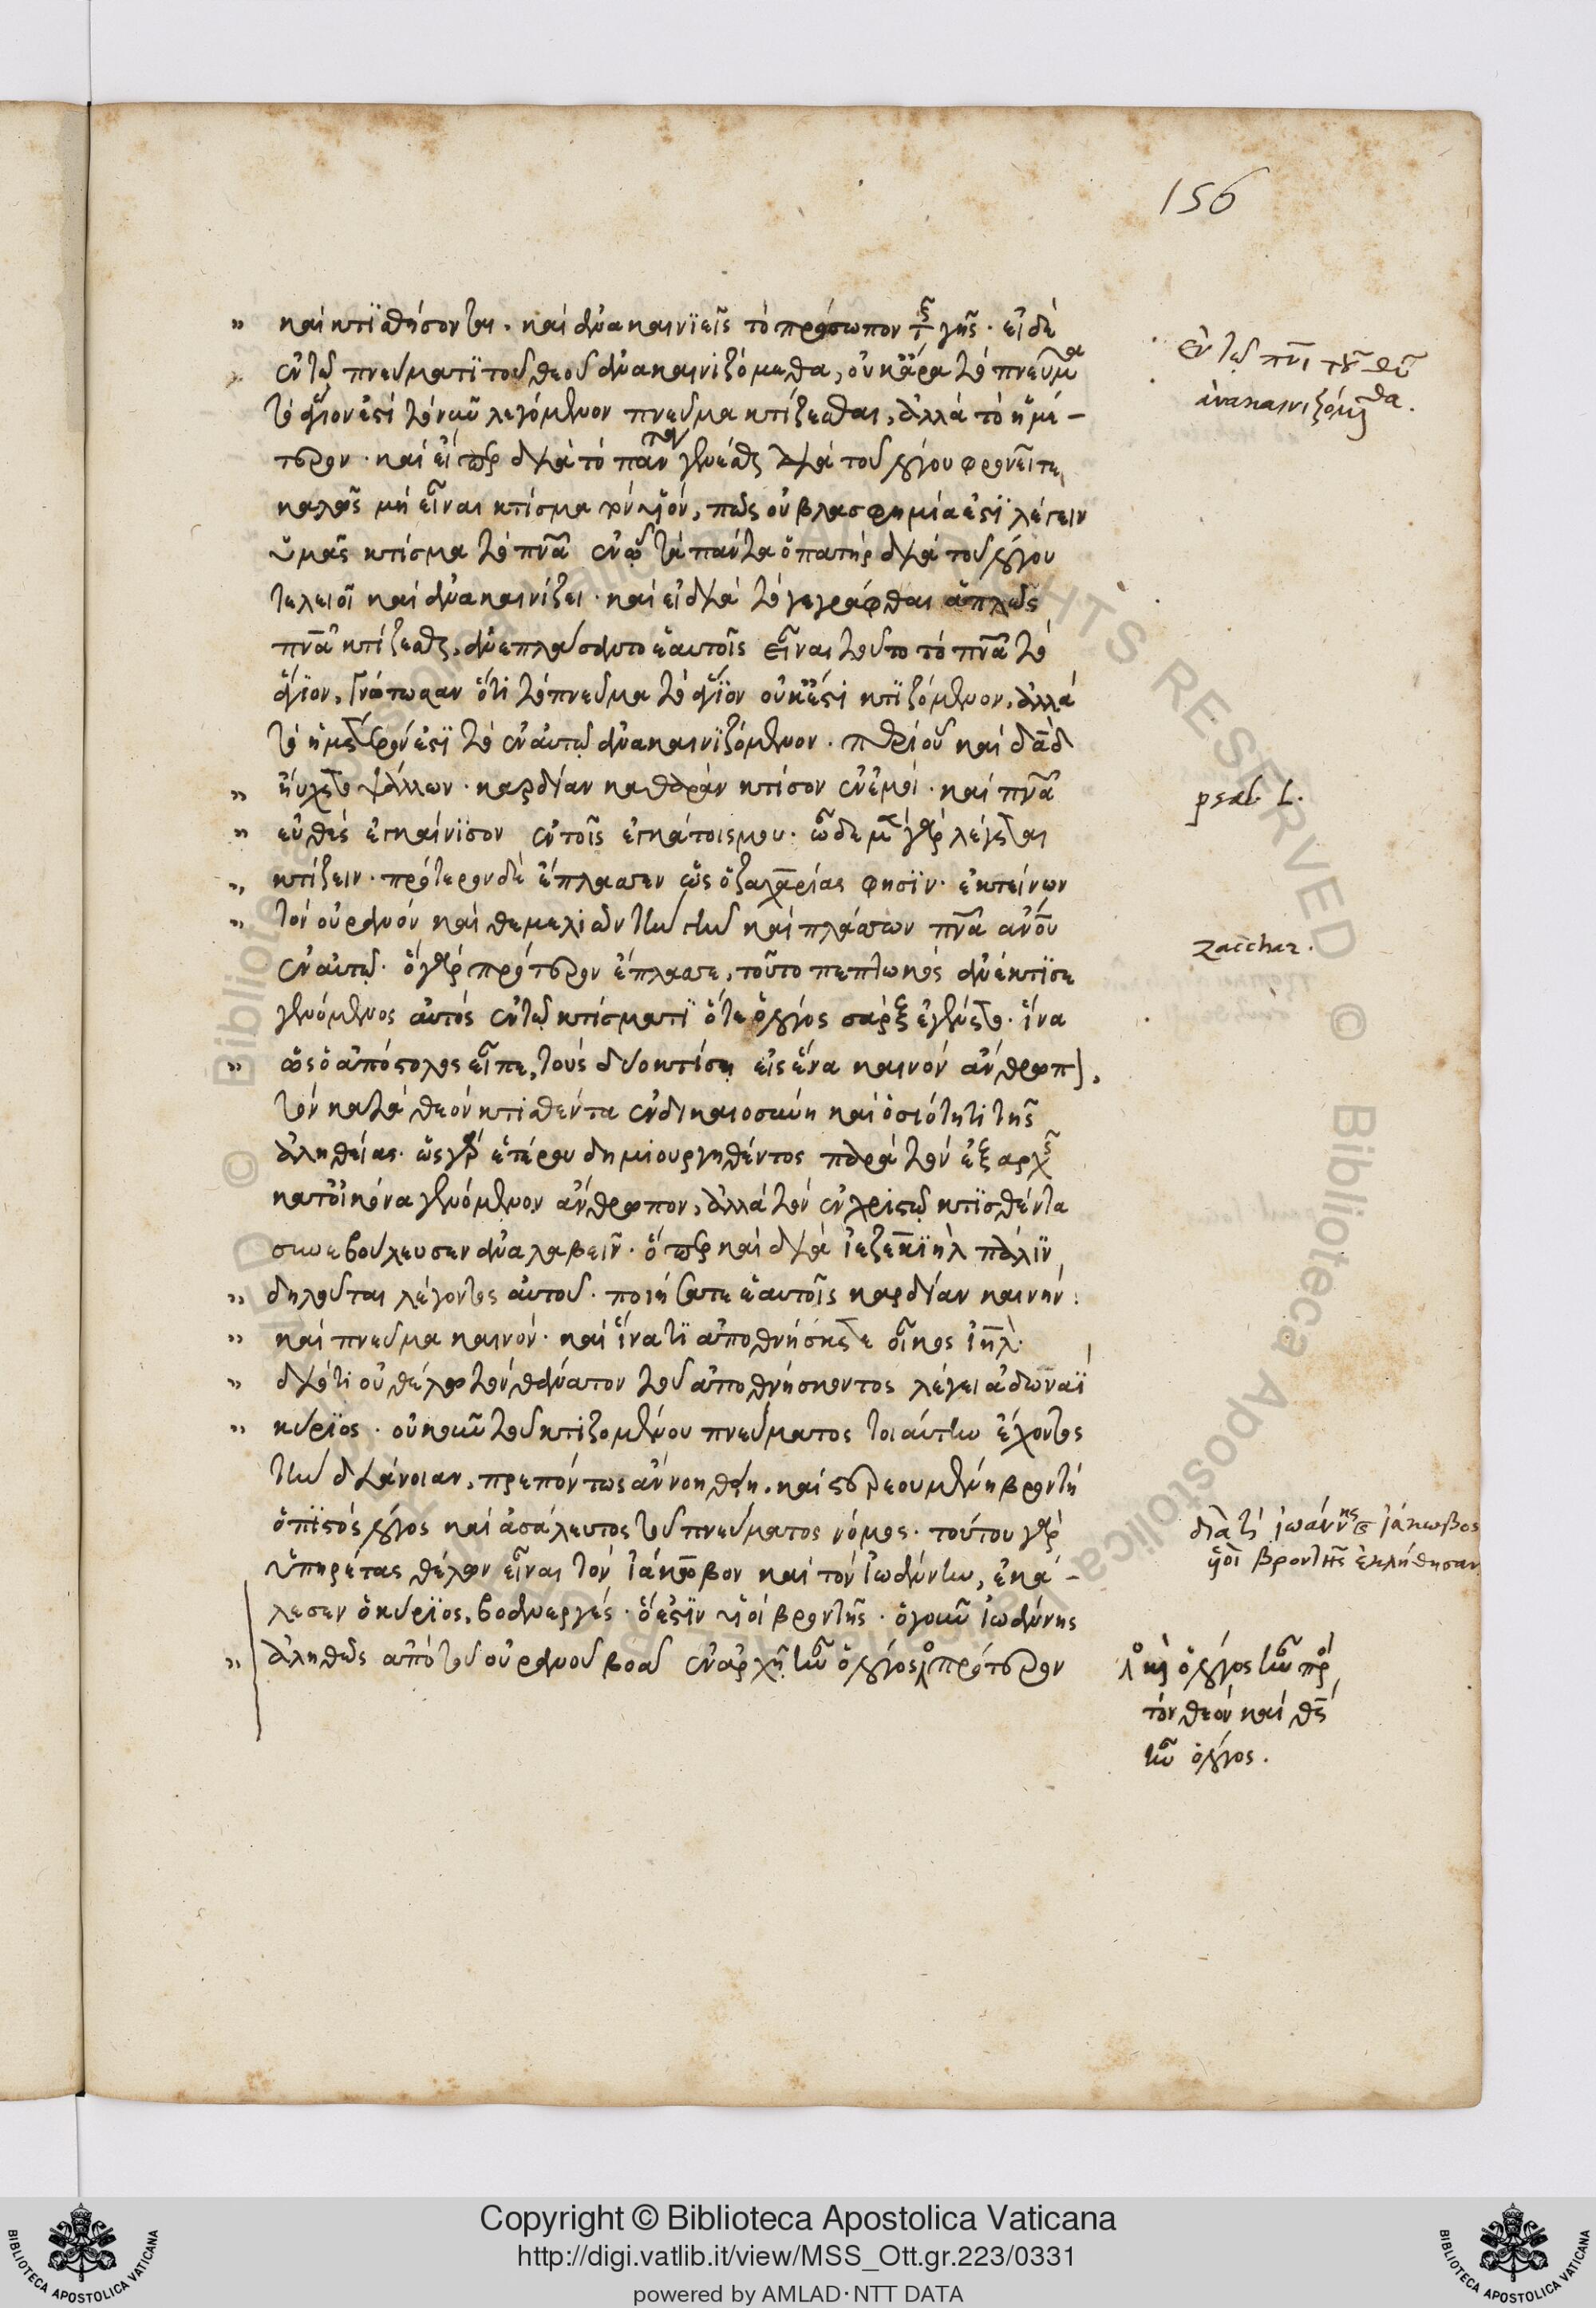 156
καὶ κτισθήσονται· καὶ ἀνακαινιεῖς τὸ πρόσωπον τῆς γῆς· εἰ δὲ
ἐν τῷ πνεύματι τοῦ θεοῦ ἀνακαινιζόμεθα, οὐκ ἄρα τὸ πνεῦμα
τὸ ἅγιον ἐστὶ τὸ νῦν λεγόμενον πνεῦμα κτίζεσθαι, ἀλλὰ τὸ ἡμέ-
τερον· καὶ εἴπερ διὰ τὸ πάντα γενέσθαι διὰ τοῦ λόγου φρονεῖτε
καλῶς μὴ εἶναι κτίσμα τὸν υἱόν, πῶς οὐ βλασφημία ἐστὶ λέγειν
ὑμᾶς κτίσμα τὸ πνα ἐν ᾧ τὰ πάντα ὁ πατὴρ διὰ τοῦ λόγου
τελειοῖ καὶ ἀνακαινίζει· καὶ εἰ διὰ τὸ γεγράφθαι ἁπλῶς
πνα κτίζεσθαι, ἀνεπλάσαντο ἑαυτοῖς εἶναι τοῦτο τὸ πνα τὸ
ἅγιον, γνώτωσαν ὅτι τὸ πνεῦμα τὸ ἅγιον οὐκ ἔστι κτιζόμενον, ἀλλὰ
τὸ ἡμέτερόν ἐστι τὸ ἐν αὐτῷ ἀνακαινιζόμενον· περὶ οὗ καὶ δαδ
ηὔχετο ψάλλων· καρδίαν καθαρὰν κτίσον ἐν ἐμοί· καὶ πνα
εὐθὲς ἐγκαίνισον ἐν τοῖς ἐγκάτοις μου· ὧδε μὲν γὰρ λέγεται
κτίζειν· πρότερον δὲ ἔπλασεν ὡς ὁ ζαχαρίας φησίν· ἐκτείνων
τὸν οὐρανὸν καὶ θεμελιῶν τὴν γῆν καὶ πλάσσων πνα ανου
ἐν αὐτῷ· ὃ γὰρ πρότερον ἔπλασε, τοῦτο πεπτωκὸς ἀνέκτισε
γενόμενος αὐτὸς ἐν τῷ κτίσματι ὅτε ὁ λόγος σάρξ ἐγένετο· ἵνα
ὡς ὁ ἀπόστολος εἶπε, τοὺς δύο κτίσῃ εἰς ἕνα καινὸν ἄνθρωπον,
τὸν κατὰ θεὸν κτισθέντα ἐν δικαιοσύνῃ καὶ ὁσιότητι τῆς
ἀληθείας· ὡς γὰρ ἑτέρου δημιουργηθέντος παρὰ τὸν ἐξ αρχῆς
κατ᾽ εἰκόνα γενόμενον ἄνθρωπον, ἀλλὰ τὸν ἐν χριστῷ κτισθέντα
συνεβούλευσεν ἀναλαβεῖν· ὅπερ καὶ διὰ ἰεζεκιὴλ πάλιν
δηλοῦται λέγοντος αὐτοῦ· ποιήσατε ἑαυτοῖς καρδίαν καινήν·
καὶ πνεῦμα καινόν· καὶ ἵνα τί ἀποθνήσκετε οἶκος ιηλ·
διότι οὐ θέλω τὸν θάνατον τοῦ ἀποθνήσκοντος λέγει ἀδωναῒ
κύριος· οὐκοῦν τοῦ κτιζομένου πνεύματος τοιαύτην ἔχοντος
τὴν διάνοιαν, πρεπόντως ἂν νοηθῇ, καὶ στερεουμένη βροντὴ
ὁ πιστὸς λόγος καὶ ἀσάλευτος τοῦ πνεύματος νόμος· τούτου γὰρ
ὑπηρέτας θέλων εἶναι τὸν ἰάκωβον καὶ τὸν ἰωάννην, ἐκά-
λεσεν ὁ κύριος, βοανεργές· ὅ ἐστιν υἱοὶ βροντῆς· ὁ γοῦν ἰωάννης
ἀληθῶς ἀπὸ τοῦ οὐρανοῦ βοᾷ ἐν ἀρχῇ ἦν ὁ λόγος πρότερον
ἐν τῷ πνι τοῦ θυ
ἀνακαινιζόμεθα.
psal. L.
zacchar.
διὰ τί ἰωάννης καὶ ἰάκωβος
υἱοὶ βροντῆς ἐκλήθησαν
καὶ ὁ λόγος ἦν πρὸς
τὸν θεόν καὶ θς
ἦν ὁ λόγος.
Copyright © Biblioteca Apostolica Vaticana
http://digi.vatlib.it/view/MSS_Ott.gr.223/0331
powered by AMLAD·NTT DATA